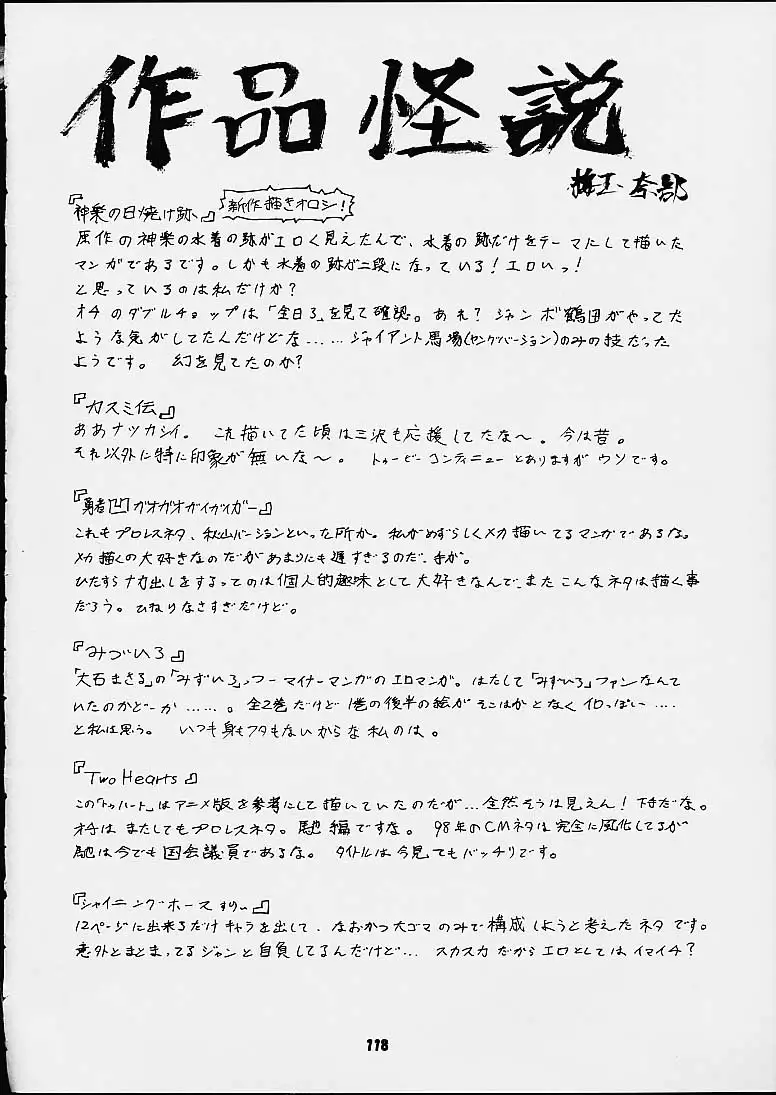 作品怪説
『神楽の日焼け跡』 新作描きオロシ!
原作の神楽の水着の跡がエロく見えたんで、水着の跡だけをテーマにして描いた
マンガであるです。しかも水着の跡が二段になっている!エロいっ!
と思っているのは私だけか?
オチのダブルチョップは「全日3」を見て確認。あれ? ジャンボ鶴田がやってた
ような気がしてたんだけどな……ジャイアント馬場(ヤングバージョン)のみの技だった
ようです。 幻を見てたのか?
『カスミ伝』
ああナツカシイ。 これ描いてた頃は三沢も応援してたな〜。今は昔。
それ以外に特に印象が無いな〜。 トゥービーコンティニューとありますがウソです。
『勇者凹ガオガオガイガイガー』
これもプロレスネタ、秋山バージョンといった所か。私がめずらしくメカ描いてるマンガであるな。
メカ描くの大好きなのだがあまりにも遅すぎるのだ、手が。
ひたすらナカ出しをするってのは個人的趣味として大好きなんで、またこんなネタは描く事
だろう。ひねりなさすぎだけど。
『みづいろ』
「大石まさる」の「みずいろ」っつーマイナーマンガのエロマンガ。はたして「みずいろ」ファンなんて
いたのかどーか……。全2巻だけど1巻の後半の絵がそこはかとなくイロっぽい……
と私は思う。 いつも身もフタもないからな私のは。
『Two Hearts』
この「トゥハート」はアニメ版を参考にして描いていたのだが…全然そうは見えん!下手だな。
オチはまたしてもプロレスネタ。馳編ですな。 98年のCMネタは完全に風化してるが
馳は今でも国会議員であるな。 タイトルは今見てもバッチリです。
『シャイニングホース すりぃ』
12ページに出来るだけキャラを出して、なおかつ大ゴマのみで構成しようと考えたネタです。
意外とまとまってるジャンと自負してるんだけど… スカスカだからエロとしてはイマイチ?
118